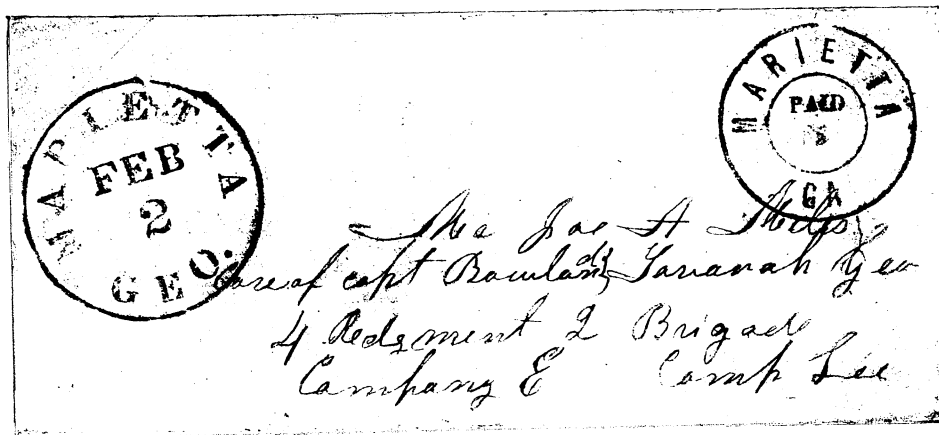 MARIETTA
FEB
2
GEO.
MARIETTA
PAID
GA
Joe H
Care of capt Savanah Geo
4 Redgment 2 Brigade
Company E Camp Lee